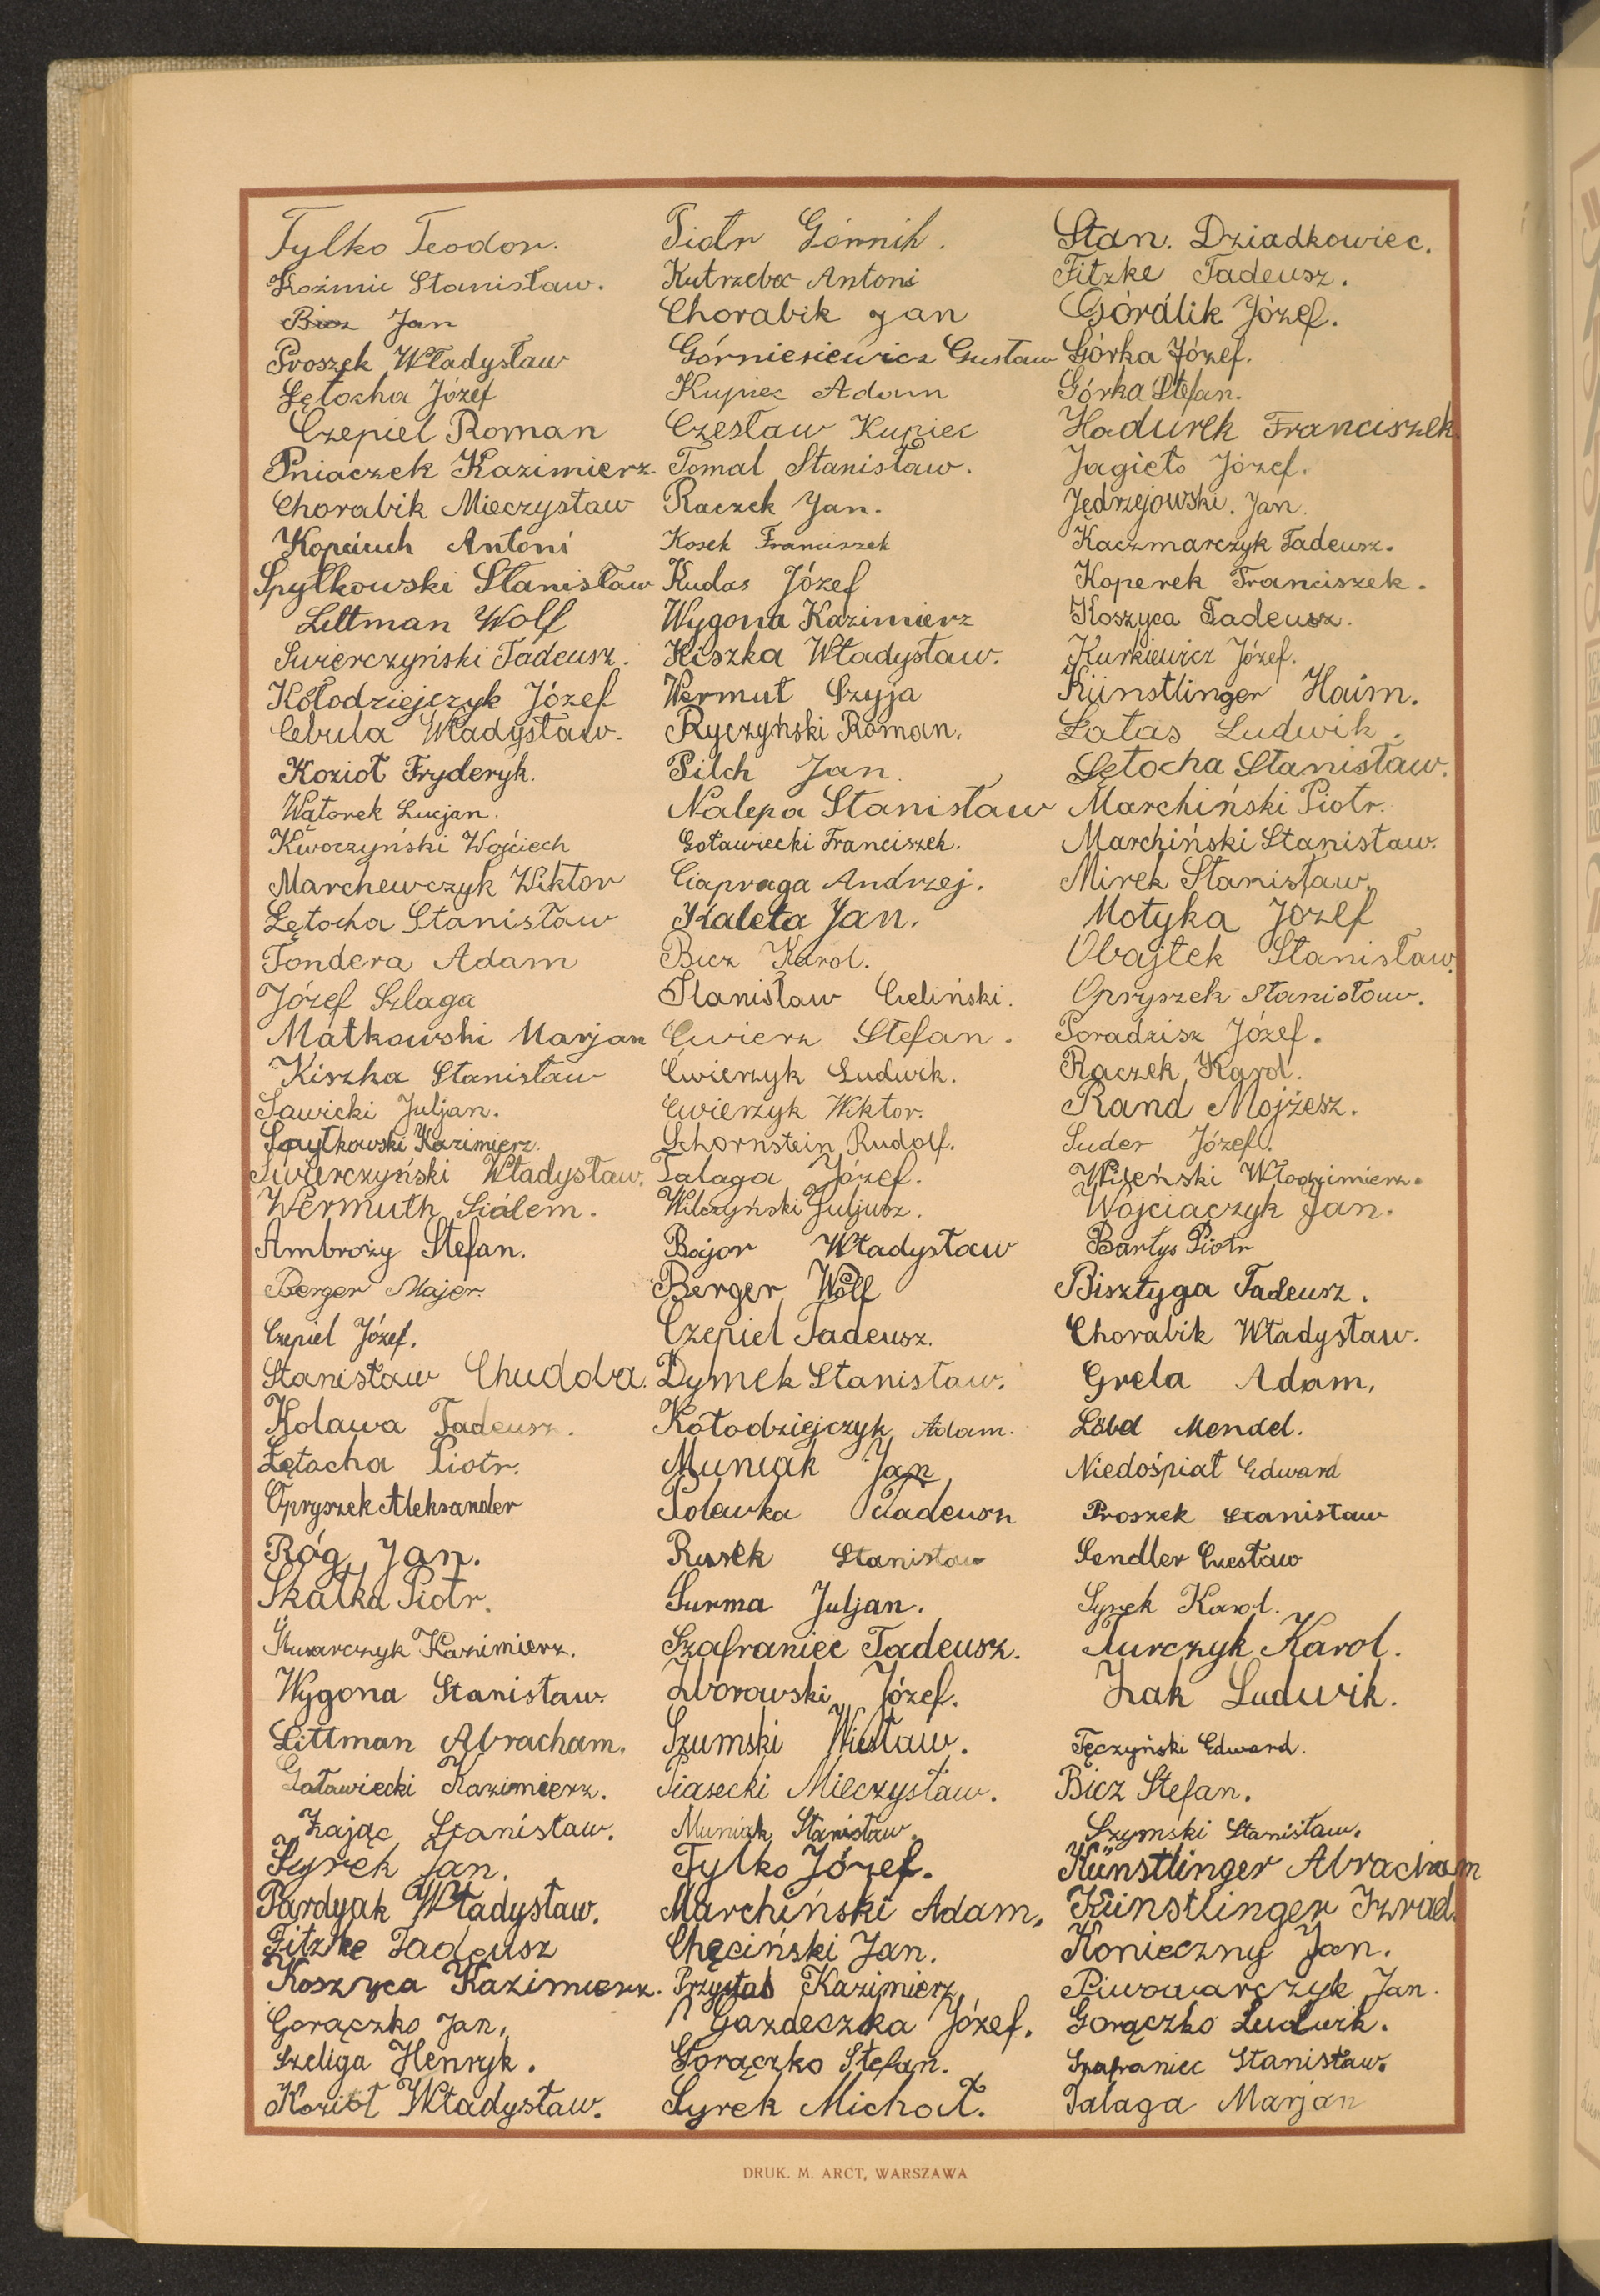 Tylko Teodor.
Koźmic Stanisław.
Bicz Jan
Proszek Władysław
Lętocha Józef
Czepiel Roman
Pniaczek Kazimierz.
Chorabik Mieczysław
Kopciuch Antoni
Spytkowski Stanisław
Littman Wolf
Świerczyński Tadeusz.
Kołodziejczyk Józef
Cebula Władysław.
Kozioł Fryderyk.
Wątorek Lucjan.
Kwoczyński Wojciech
Marchewczyk Wiktor
Lętocha Stanisław
Tondera Adam
Józef Szlaga
Małkowski Marjan
Kiszka Stanisław
Sawicki Juljan.
Spytkowski Kazimierz.
Świerczyński Władysław.
Wermuth Siálem.
Ambroży Stefan.
Berger Majer.
Czepiel Józef.
Stanisław Chudoba.
Kolawa Tadeusz.
Łętocha Piotr.
Opryszek Aleksander
Róg Jan.
Skałka Piotr.
Ślusarczyk Kazimierz.
Wygona Stanisław.
Littman Abracham.
Goławiecki Kazimierz.
Zając Stanisław.
Syrek Jan.
Pardyak Władysław.
Fitzke Tadeusz
Koszyca Kazimierz.
Gorączko Jan,
Szeliga Henryk.
Kozioł Władysław.
Piotr Górnik.
Kutrzeba Antoni
Chorabik Jan
Górniesiewicz Gustaw
Kupiec Adam
Czesław Kupiec
Tomal Stanisław.
Raczek Jan.
Kosek Franciszek
Kudas Józef
Wygona Kazimierz
Kiszka Władysław.
Wermut Szyja
Ryczyński Roman.
Pilch Jan.
Nalepa Stanisław
Goławiecki Franciszek.
Ciapraga Andrzej.
Kaleta Jan.
Bicz Karol.
Stanisław Cieliński.
Ćwierz Stefan.
Ćwierzyk Ludwik.
Ćwierzyk Wiktor.
Schornstein Rudolf.
Talaga Józef.
Wilczyński Juljusz.
Bajor Władysław
Berger Wolf
Czepiel Tadeusz.
Dymek Stanisław.
Kołodziejczyk Adam.
Muniak Jan
Polewka Tadeusz
Rusek Stanisław
Surma Juljan.
Szafraniec Tadeusz.
Zborowski Józef.
Szumski Wiesław.
Piasecki Mieczysław.
Muniak Stanisław.
Tylko Józef.
Marchiński Adam.
Chęciński Jan.
Przystał Kazimierz.
Gazdeczka Józef.
Gorączko Stefan.
Syrek Michał.
Stan. Dziadkowiec.
Fitzke Tadeusz.
Górálik Józef.
Górka Józef.
Górka Stefan.
Hadurek Franciszek.
Jagieło Józef.
Jędrzejowski. Jan.
Kaczmarczyk Tadeusz.
Koperek Franciszek.
Koszyca Tadeusz.
Kurkiewicz Józef.
Künstlinger Haim.
Łatas Ludwik.
Lętocha Stanisław.
Marchiński Piotr.
Marchiński Stanisław.
Mirek Stanisław.
Motyka Józef
Obajtek Stanisław.
Opryszek Stanisław.
Poradzisz Józef.
Raczek Karol.
Rand Mojżesz.
Suder Józef.
Wileński Włodzimierz.
Wojciaczyk Jan.
Bartys Piotr
Bisztyga Tadeusz.
Chorabik Władysław.
Grela Adam,
Löbel Mendel.
Niedośpiał Edward
Proszek Stanisław
Sendler Czesław
Syrek Karol.
Turczyk Karol.
Żak Ludwik.
Tęczyński Edward.
Bicz Stefan.
Szymski Stanisław.
Künstlinger Abracham
Künstlinger Izrael.
Konieczny Jan.
Piwowarczyk Jan.
Gorączko Ludwik.
Szafraniec Stanisław.
Talaga Marjan
DRUK. M. ARCT, WARSZAWA